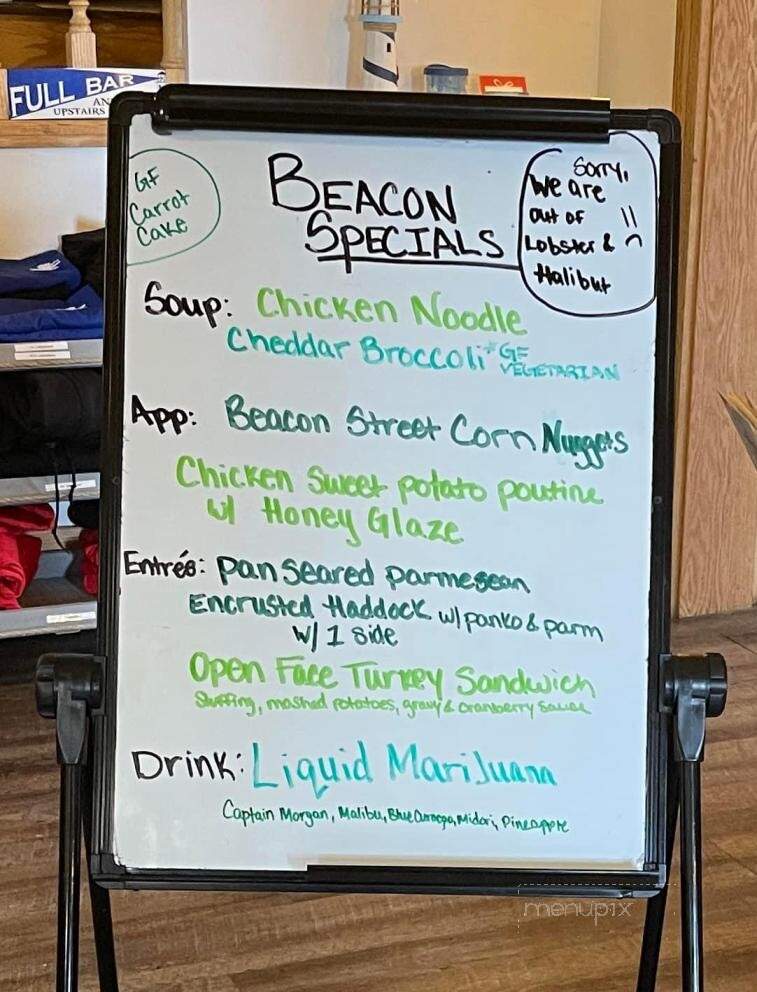 FULL BAR
AN
UPSTAIRS
GF
Carrot
Cake
BEACON
SPECIALS
Sorry,
We are
out of
Lobster &
Halibut
Soup: Chicken Noodle
Cheddar Broccoli *GF
VEGETARIAN
App: Beacon Street Corn Nuggets
Chicken Sweet potato poutine
w/ Honey Glaze
Entrés: pan seared parmesean
Encrusted Haddock w/ panko & parm
w/ 1 side
Open Face Turkey Sandwich
Stuffing, mashed potatoes, gravy & cranberry sauce
Drink: Liquid Marijuana
Captain Morgan, Malibu, Blue Curacpa, Midori, Pineapple
menupix